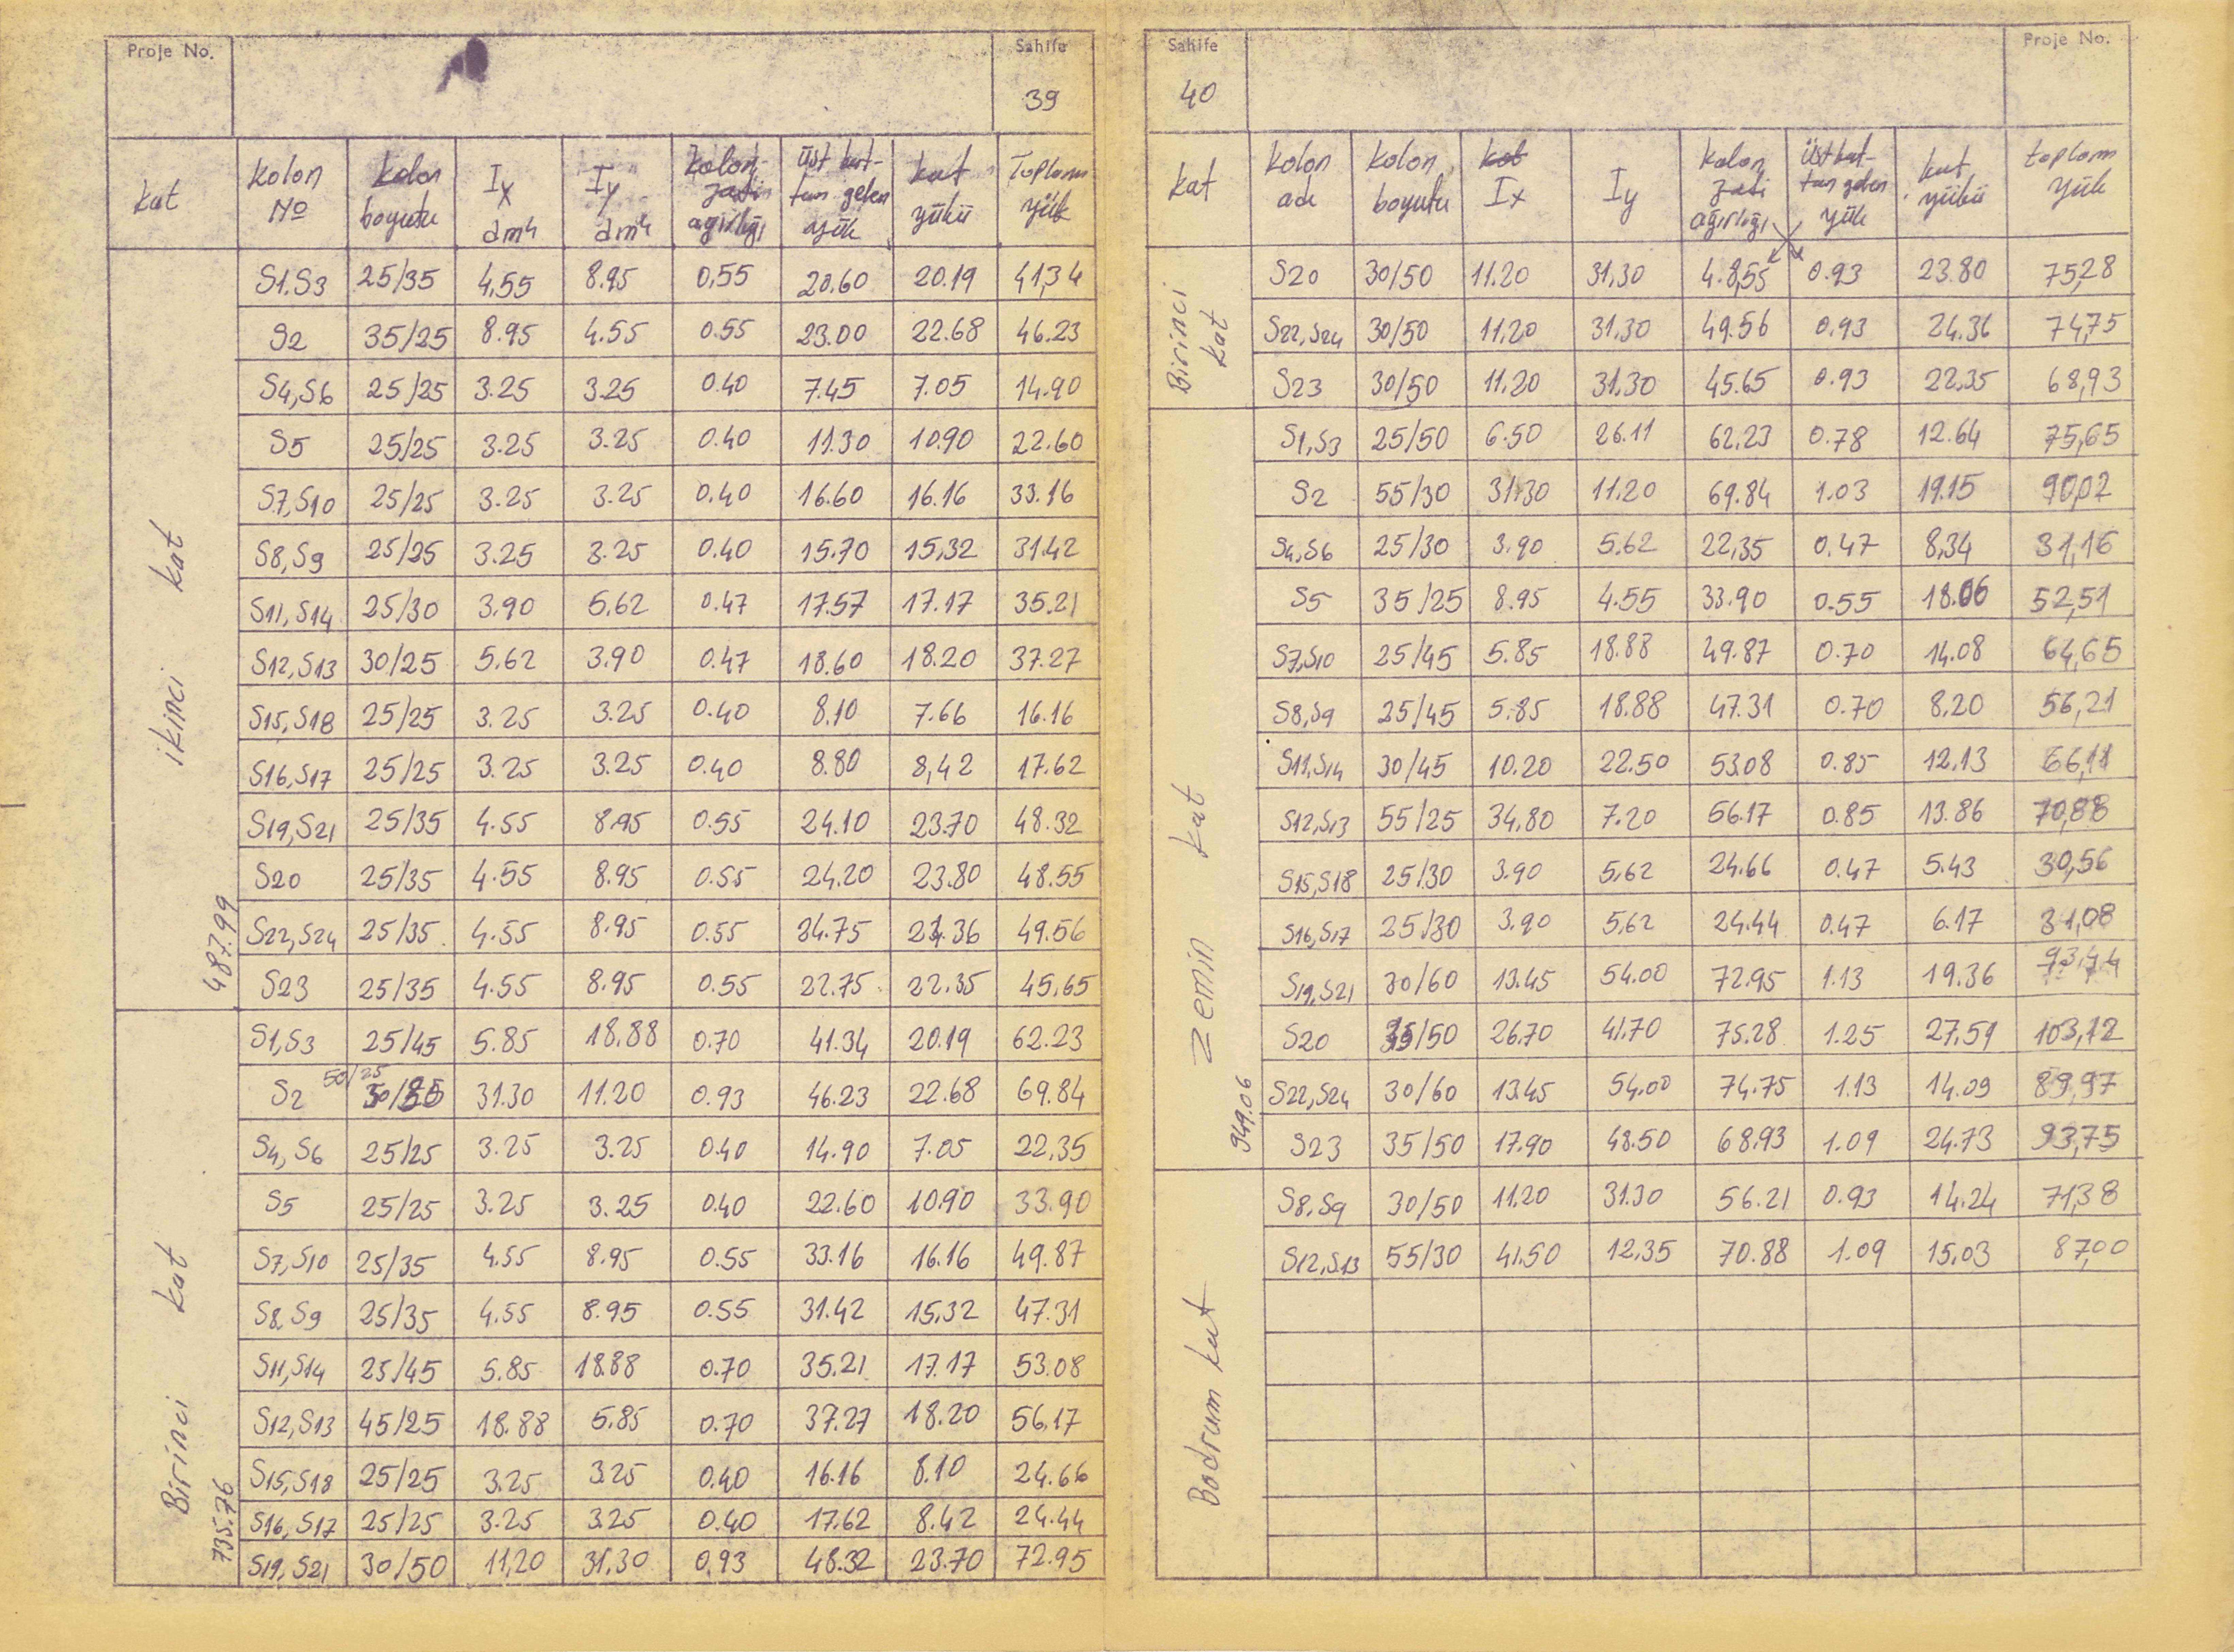 Proje No. Sahife
39
kat kolon No kolon boyutu Ix dm4 Iy dm4 kolon zati ağırlığı üst kat-tan gelen yük kat yükü Toplam yük
ikinci kat
487.99
S1.S3 25/35 4,55 8.95 0,55 20.60 20.19 41,34
S2 35/25 8.95 4.55 0.55 23.00 22.68 46.23
S4,S6 25/25 3.25 3.25 0.40 7.45 7.05 14.90
S5 25/25 3.25 3.25 0.40 11.30 10.90 22.60
S7,S10 25/25 3.25 3.25 0.40 16.60 16.16 33.16
S8,S9 25/25 3.25 3.25 0.40 15.70 15,32 31.42
S11,S14 25/30 3.90 5.62 0.47 17.57 17.17 35.21
S12,S13 30/25 5.62 3.90 0.47 18.60 18.20 37.27
S15,S18 25/25 3.25 3.25 0.40 8.10 7.66 16.16
S16,S17 25/25 3.25 3.25 0.40 8.80 8,42 17.62
S19,S21 25/35 4.55 8.95 0.55 24.10 23.70 48.32
S20 25/35 4.55 8.95 0.55 24.20 23.80 48.55
S22,S24 25/35 4.55 8.95 0.55 24.75 24.36 49.56
S23 25/35 4.55 8.95 0.55 22.75 22.35 45.65
Birinci kat
735.76
S1,S3 25/45 5.85 18.88 0.70 41.34 20.19 62.23
S2 50/25 31.30 11.20 0.93 46.23 22.68 69.84
S4,S6 25/25 3.25 3.25 0.40 14.90 7.05 22,35
S5 25/25 3.25 3.25 0.40 22.60 10.90 33.90
S7,S10 25/35 4.55 8.95 0.55 33.16 16.16 49.87
S8,S9 25/35 4.55 8.95 0.55 31.42 15,32 47.31
S11,S14 25/45 5.85 18.88 0.70 35.21 17.17 53.08
S12,S13 45/25 18.88 5.85 0.70 37.27 18.20 56,17
S15,S18 25/25 3.25 3.25 0.40 16.16 8.10 24.66
S16,S17 25/25 3.25 3.25 0.40 17.62 8.42 24.44
S19,S21 30/50 11,20 31,30 0,93 48.32 23.70 72.95
Sahife Proje No.
40
kat kolon adı kolon boyutu kat Ix Iy kolon zati ağırlığı üst kat-tan gelen yük kat yükü toplam yük
Birinci kat
S20 30/50 11.20 31,30 4.8,55 0.93 23.80 75,28
S22,S24 30/50 11,20 31.30 49.56 0.93 24.36 74,75
S23 30/50 11.20 31.30 45.65 0.93 22.35 68,93
Zemin kat
949.06
S1,S3 25/50 6.50 26.11 62.23 0.78 12.64 75,65
S2 55/30 31.30 11.20 69.84 1.03 19.15 90,02
S4,S6 25/30 3.90 5.62 22,35 0.47 8,34 31,16
S5 35/25 8.95 4.55 33.90 0.55 18.06 52,51
S7,S10 25/45 5.85 18.88 49.87 0.70 14.08 64,65
S8,S9 25/45 5.85 18.88 47.31 0.70 8.20 56,21
S11,S14 30/45 10.20 22.50 53.08 0.85 12.13 66,11
S12,S13 55/25 34.80 7.20 56.17 0.85 13.86 70,88
S15,S18 25/30 3.90 5,62 24.66 0.47 5.43 30,56
S16,S17 25/30 3.90 5,62 24.44 0.47 6.17 31,08
S19,S21 30/60 13.45 54.00 72.95 1.13 19.36
S20 35/50 26.70 41.70 75.28 1.25 27.59 103,12
S22,S24 30/60 13.45 54.00 74.75 1.13 14.09 89,97
S23 35/50 17.90 48.50 68.93 1.09 24.73 93,75
Bodrum kat
S8,S9 30/50 11.20 31.30 56.21 0.93 14.24 71,38
S12,S13 55/30 41.50 12,35 70.88 1.09 15,03 87,00